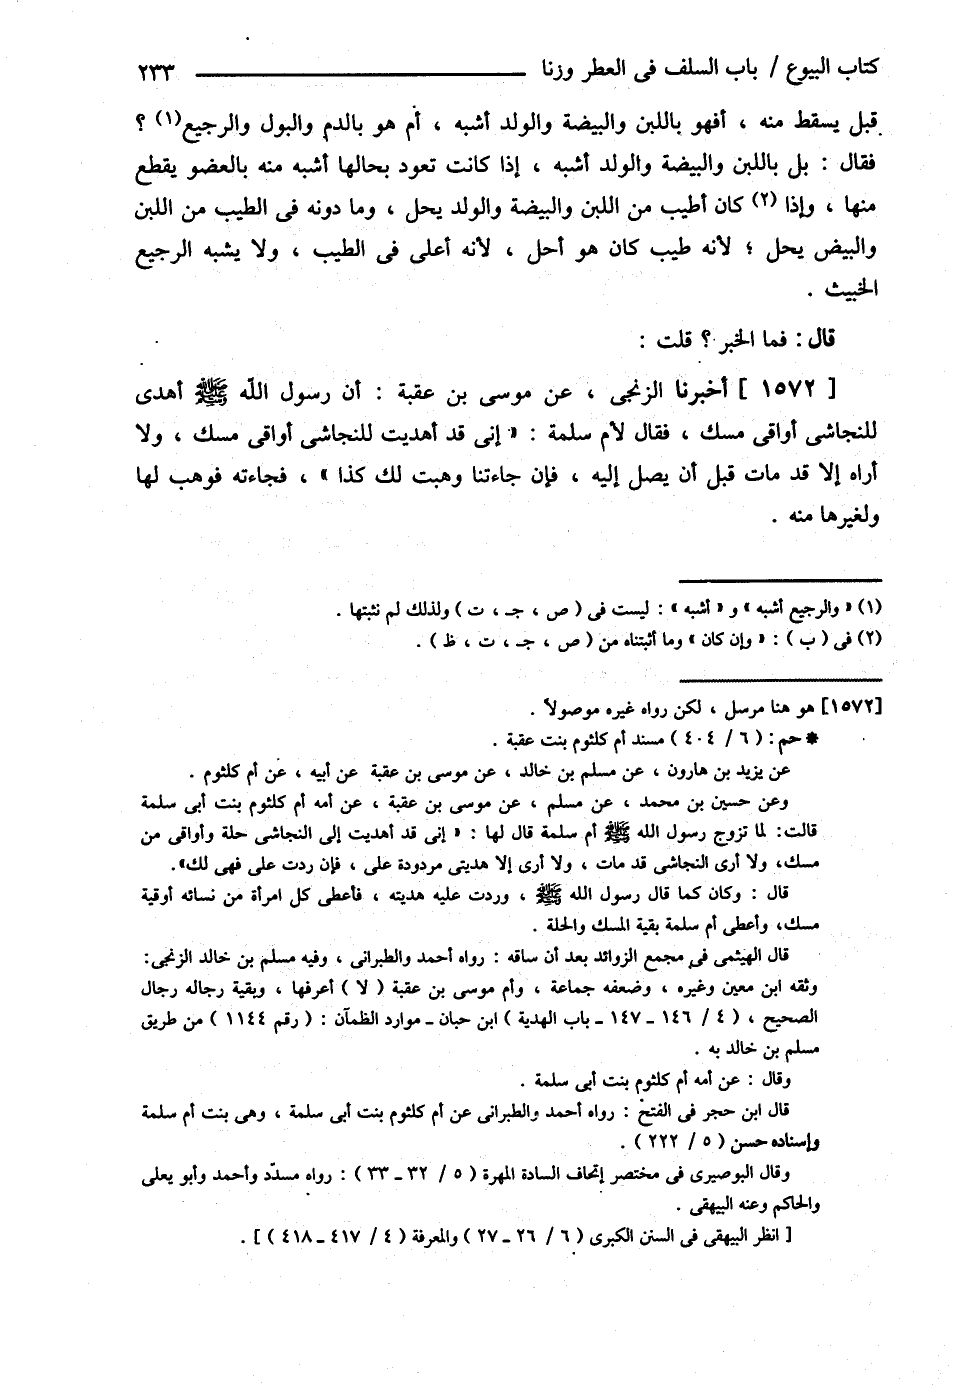 كتاب البيوع / باب السلف فى العطر وزنا ــــــــــــــــــــ ٢٣٣
قبل يسقط منه ، أفهو باللبن والبيضة والولد أشبه ، أم هو بالدم والبول والرجيع(١) ؟
فقال : بل باللبن والبيضة والولد أشبه ، إذا كانت تعود بحالها أشبه منه بالعضو يقطع
منها ، وإذا (٢) كان أطيب من اللبن والبيضة والولد يحل ، وما دونه فى الطيب من اللبن
والبيض يحل ؛ لأنه طيب كان هو أحل ، لأنه أعلى فى الطيب ، ولا يشبه الرجيع
الخبيث .
قال : فما الخبر ؟ قلت :
[ ١٥٧٢ ] أخبرنا الزنجى ، عن موسى بن عقبة : أن رسول اللّه ﷺ أهدى
للنجاشى أواقى مسك ، فقال لأم سلمة : « إنى قد أهديت للنجاشى أواقى مسك ، ولا
أراه إلا قد مات قبل أن يصل إليه ، فإن جاءتنا وهبت لك كذا » ، فجاءته فوهب لها
ولغيرها منه .
(١) « والرجيع أشبه » و « أشبه » : ليست فى ( ص ، جـ ، ت ) ولذلك لم نثبتها .
(٢) فى ( ب ) : « وإن كان » وما أثبتناه من ( ص ، جـ ، ت ، ظ ) .
[١٥٧٢] هو هنا مرسل ، لكن رواه غيره موصولاً .
* حم : ( ٦ / ٤٠٤ ) مسند أم كلثوم بنت عقبة .
عن يزيد بن هارون ، عن مسلم بن خالد ، عن موسى بن عقبة عن أبيه ، عن أم كلثوم .
وعن حسين بن محمد ، عن مسلم ، عن موسى بن عقبة ، عن أمه أم كلثوم بنت أبى سلمة
قالت : لما تزوج رسول الله ﷺ أم سلمة قال لها : « إنى قد أهديت إلى النجاشى حلة وأواقى من
مسك، ولا أرى النجاشى قد مات ، ولا أرى إلا هديتى مردودة على ، فإن ردت على فهى لك».
قال : وكان كما قال رسول الله ﷺ ، وردت عليه هديته ، فأعطى كل امرأة من نسائه أوقية
مسك، وأعطى أم سلمة بقية المسك والحلة .
قال الهيثمى فى مجمع الزوائد بعد أن ساقه : رواه أحمد والطبرانى ، وفيه مسلم بن خالد الزنجى:
وثقه ابن معين وغيره ، وضعفه جماعة ، وأم موسى بن عقبة ( لا ) أعرفها ، وبقية رجاله رجال
الصحيح ، ( ٤ / ١٤٦ ـ ١٤٧ ـ باب الهدية ) ابن حبان ـ موارد الظمآن : ( رقم ١١٤٤ ) من طريق
مسلم بن خالد به .
وقال : عن أمه أم كلثوم بنت أبى سلمة .
قال ابن حجر فى الفتح : رواه أحمد والطبرانى عن أم كلثوم بنت أبى سلمة ، وهى بنت أم سلمة
وإسناده حسن ( ٥ / ٢٢٢ ) .
وقال البوصيرى فى مختصر إتحاف السادة المهرة ( ٥ / ٣٢ ـ ٣٣ ) : رواه مسدّد وأحمد وأبو يعلى
والحاكم وعنه البيهقى .
[ انظر البيهقى فى السنن الكبرى ( ٦ / ٢٦ ـ ٢٧ ) والمعرفة ( ٤ / ٤١٧ ـ ٤١٨ ) ] .